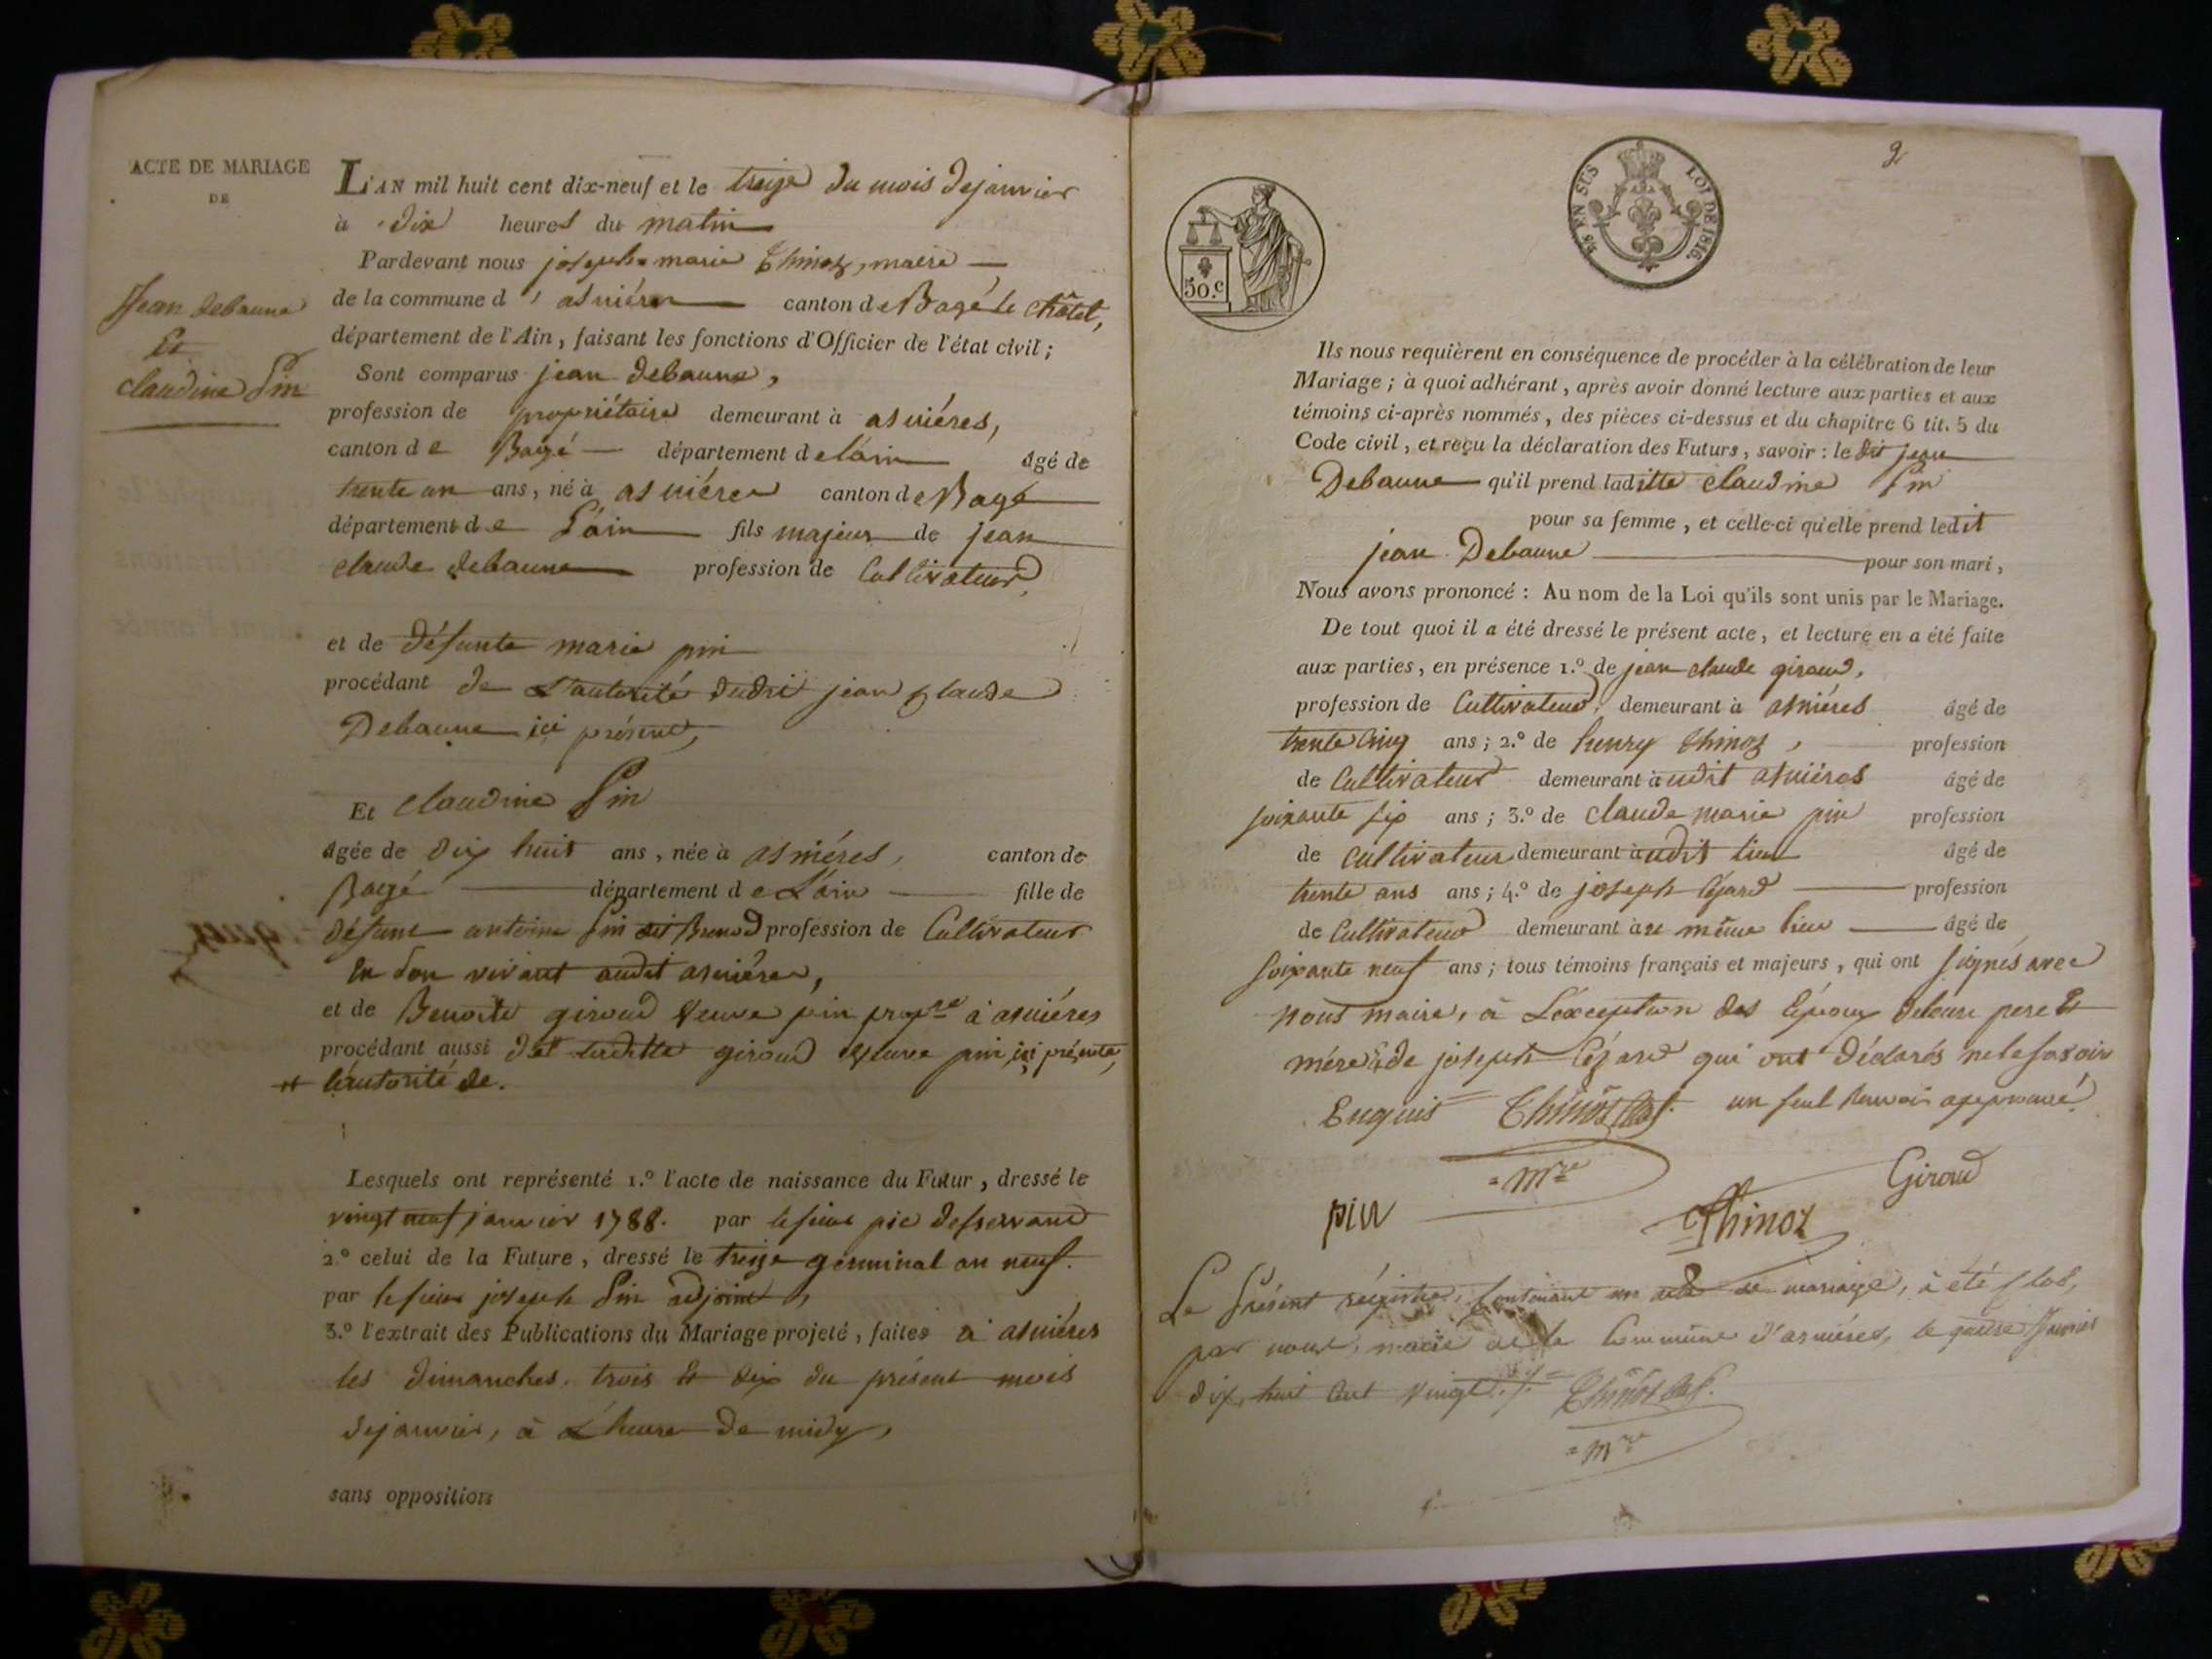 ACTE DE MARIAGE
DE
Jean debaune
Et
claudine Pin
L'AN mil huit cent dix-neuf et le treize du mois dejanvier
à dix heures du matin
Pardevant nous joseph marie Thinoz, maire
de la commune d'asniéres canton de Bagé le châtel,
département de l'Ain, faisant les fonctions d'Officier de l'état civil;
Sont comparus jean debaune,
profession de propriétaire demeurant à asniéres,
canton de Bagé département de lain âgé de
trente un ans, né à asniéres canton de Bagé
département de L'ain fils majeur de jean
claude debaune profession de Cultivateur,
et de défunte marie pin
procédant de L'autorité dudit jean claude
Debaune ici présent,
Et claudine Pin
âgée de dix huit ans, née à asniéres, canton de
Bagé département de L'ain fille de
défunt antoine Pin dit profession de Cultivateur
En son vivant audit asniéres,
et de Benoite giroud veuve pin prop.re à asniéres
procédant aussi de laditte giroud veuve pin, ici présente,
l'autorité de.
Lesquels ont représenté 1.º l'acte de naissance du Futur, dressé le
vingt neuf janvier 1788. par le sieur pic desservant
2.º celui de la Future, dressé le treize germinal an neuf.
par le sieur joseph Pin adjoint,
3.º l'extrait des Publications du Mariage projeté, faites à asniéres
les dimanches trois et dix du présent mois
dejanvier, à L'heure de midy,
sans opposition
2
50.c
5.s EN SUS
LOI DE 1816.
Ils nous requièrent en conséquence de procéder à la célébration de leur
Mariage; à quoi adhérant, après avoir donné lecture aux parties et aux
témoins ci-après nommés, des pièces ci-dessus et du chapitre 6 tit. 5 du
Code civil, et reçu la déclaration des Futurs, savoir: le dit jean
Debaune qu'il prend laditte claudine Pin
pour sa femme, et celle-ci qu'elle prend ledit
jean Debaune pour son mari,
Nous avons prononcé: Au nom de la Loi qu'ils sont unis par le Mariage.
De tout quoi il a été dressé le présent acte, et lecture en a été faite
aux parties, en présence 1.º de jean claude giroud,
profession de Cultivateur, demeurant à asniéres âgé de
trente cinq ans; 2.º de henry thinoz, profession
de Cultivateur demeurant audit asniéres âgé de
soixante six ans; 3.º de claude marie pin profession
de cultivateur demeurant audit lieu âgé de
trente ans ans; 4.º de joseph profession
de Cultivateur demeurant au même lieu âgé de
soixante neuf ans; tous témoins français et majeurs, qui ont signés avec
nous maire, à L'exception des Epoux deleur pere Et
mére & de joseph qui ont déclarés ne le savoir
Enquis Thinoz un seul Renvoi approuvé
= M.re
pin
Thinoz
Giroud
Le Présent régistre, Contenant un acte de mariage, à été Clos,
par nous, maire de la Commune d'asniéres, le janvier
dix huit Cent vingt. Thinoz
= M.re